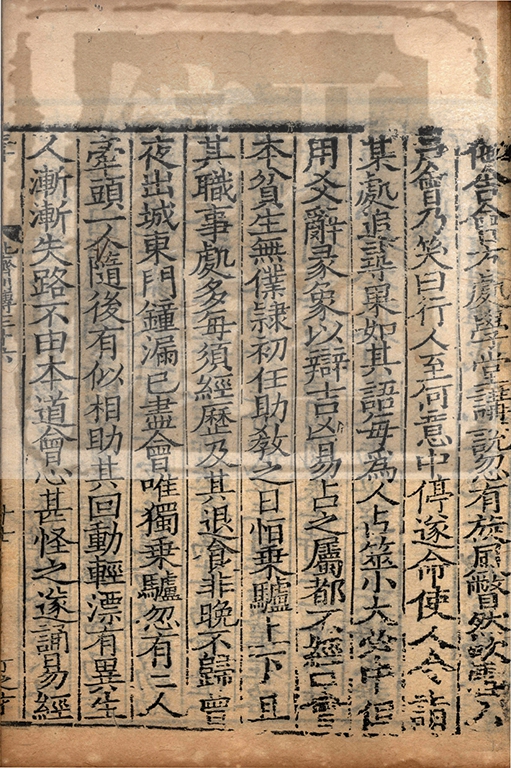 會處學堂講說忽有旋風瞥然吹雪入
戶會乃笑曰行人至何意中停遂命使人令詣
某處追尋果如其語每爲人占筮小大必中但
用爻辭彖象以辯吉凶易占之屬都不經口會
本貧生無僕隸初任助教之日恒乗驢上下且
其職事處多每須經歷及其退食非晚不歸曾
夜出城東門鍾漏已盡會唯獨乗驢忽有二人
牽頭一人隨後有似相助其回動輕漂有異生
人漸漸失路不由本道會心甚怪之遂誦易經
北齊列傳三十六
十七